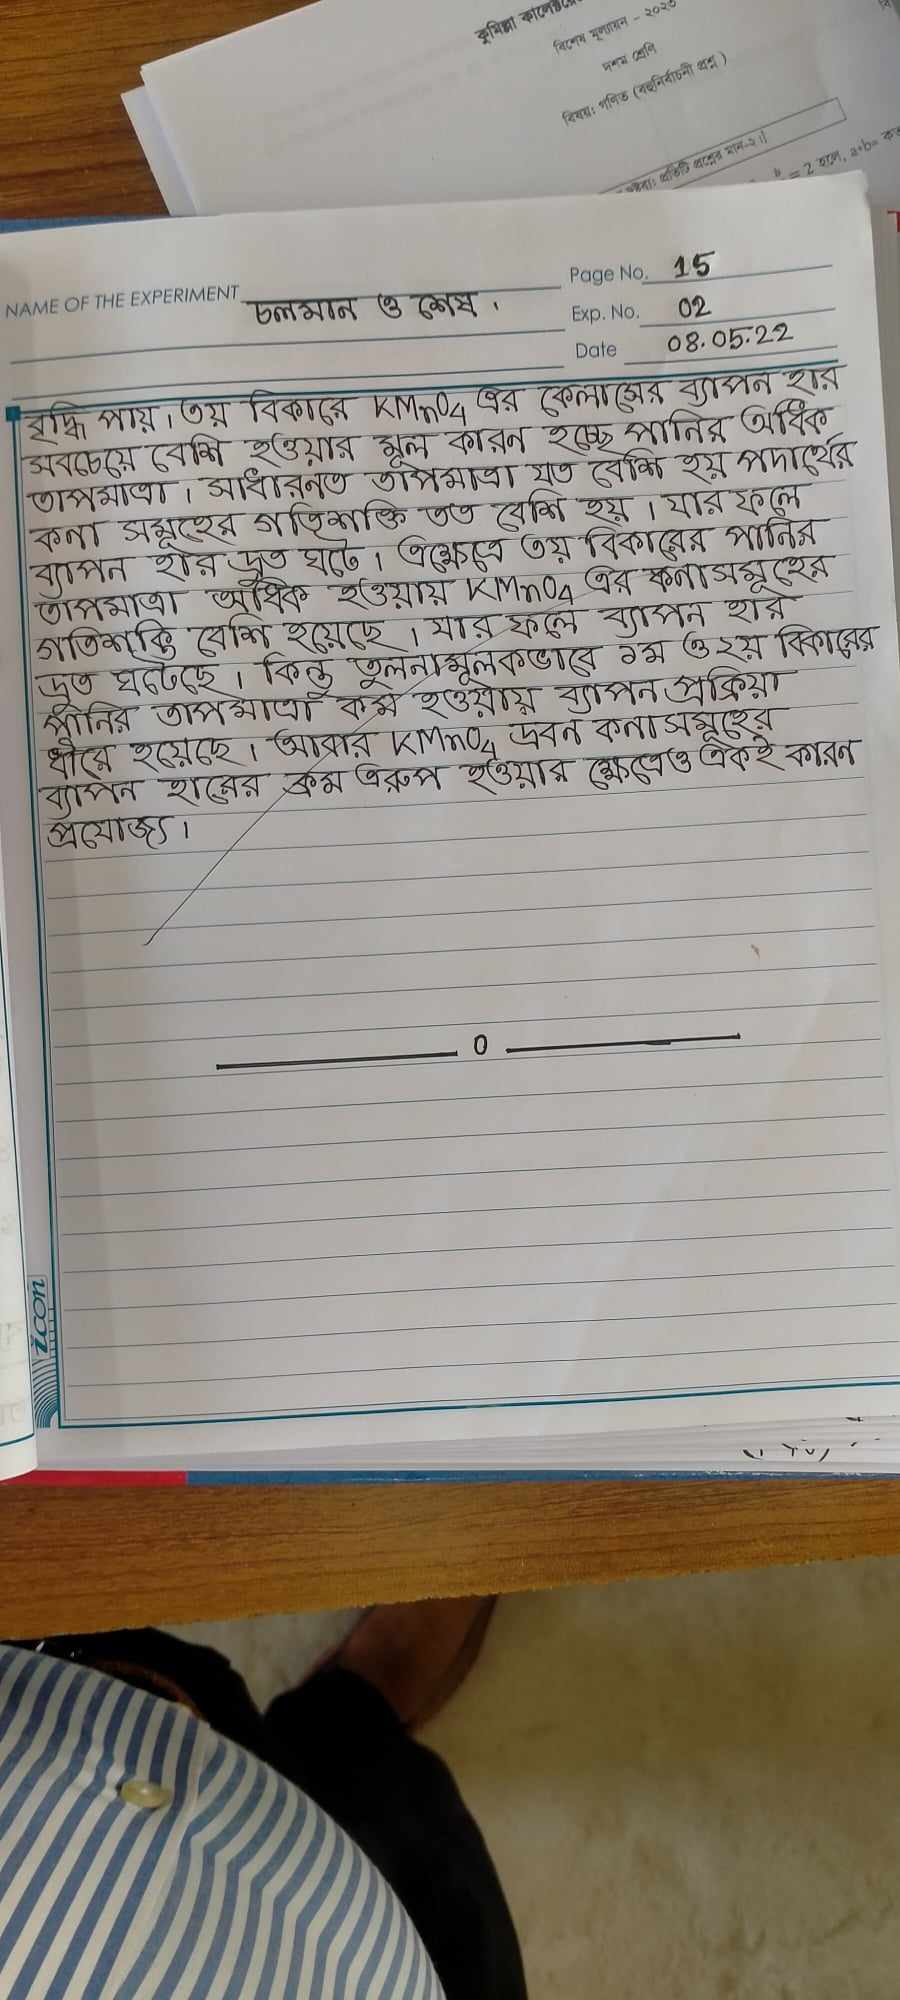 কুমিল্লা কালেক্টরেট
বিশেষ মূল্যায়ন - ২০২৩
দশম শ্রেণি
বিষয়: গণিত (বহুনির্বাচনী প্রশ্ন)
প্রতিটি প্রশ্নের মান-২।]
= 2 হলে, a+b= কত
NAME OF THE EXPERIMENT চলমান ও শেষ।
Page No. 15
Exp. No. 02
Date 08.05.22
বৃদ্ধি পায়। ৩য় বিকারে KMnO4 এর কেলাসের ব্যাপন হার
সবচেয়ে বেশি হওয়ার মূল কারন হচ্ছে পানির অধিক
তাপমাত্রা। সাধারনত তাপমাত্রা যত বেশি হয় পদার্থের
কনা সমূহের গতিশক্তি তত বেশি হয়। যার ফলে
ব্যাপন হার দ্রুত ঘটে। এক্ষেত্রে ৩য় বিকারের পানির
তাপমাত্রা অধিক হওয়ায় KMnO4 এর কনাসমূহের
গতিশক্তি বেশি হয়েছে। যার ফলে ব্যাপন হার
দ্রুত ঘটেছে। কিন্তু তুলনামূলকভাবে ১ম ও ২য় বিকারের
পানির তাপমাত্রা কম হওয়ায় ব্যাপন প্রক্রিয়া
ধীরে হয়েছে। আবার KMnO4 দ্রবন কনাসমূহের
ব্যাপন হারের ক্রম এরূপ হওয়ার ক্ষেত্রেও একই কারন
প্রযোজ্য।
0
icon